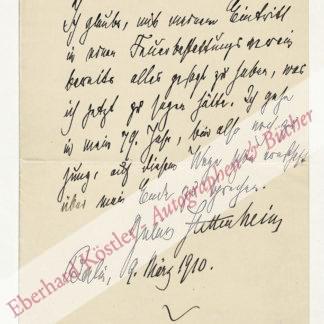 Ich glaube, mit meinem Eintritt
in einen Feuerbestattungsverein
bereits alles gesagt zu haben, was
ich jetzt zu sagen hätte. Ich gehe
in mein 79. Jahr, bin also noch zu
jung, auf diesem Wege
über mein Ende zu sprechen.
Julius Stettenheim
Berlin, 9. März 1910.
Eberhard Köstler Autographen & Bücher